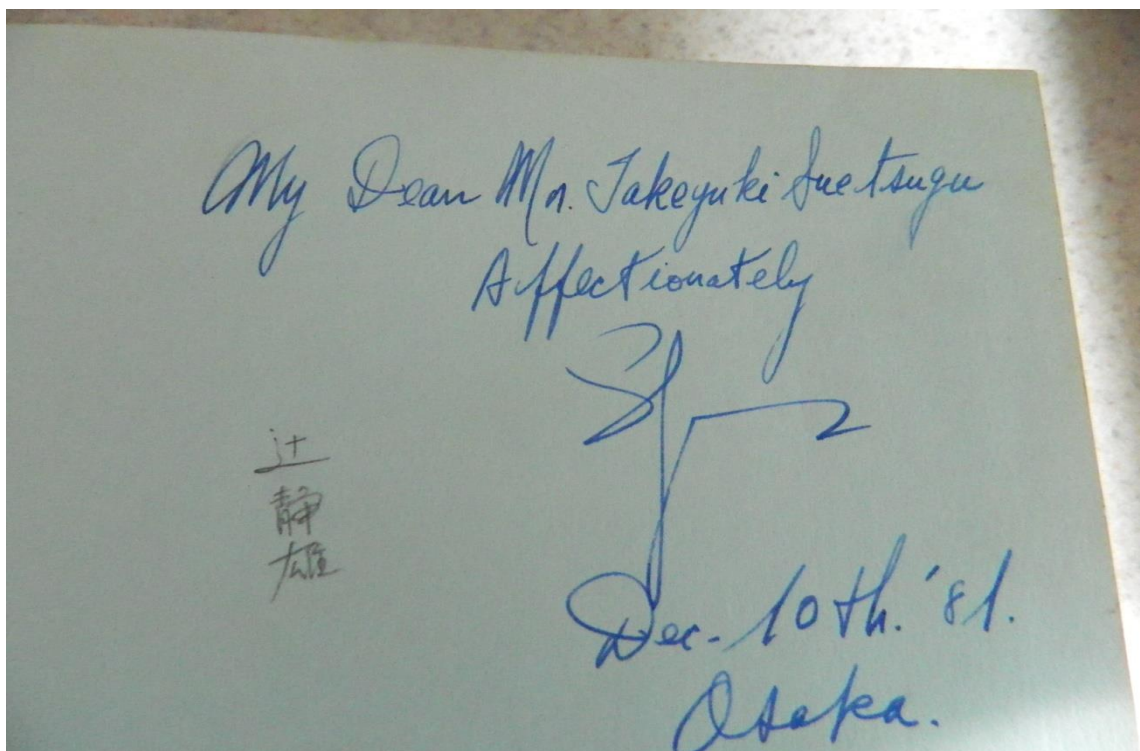 My Dear Mr. Takeyuki Suetsugu
Affectionately
辻
静
雄
Dec. 10th. '81.
Osaka.